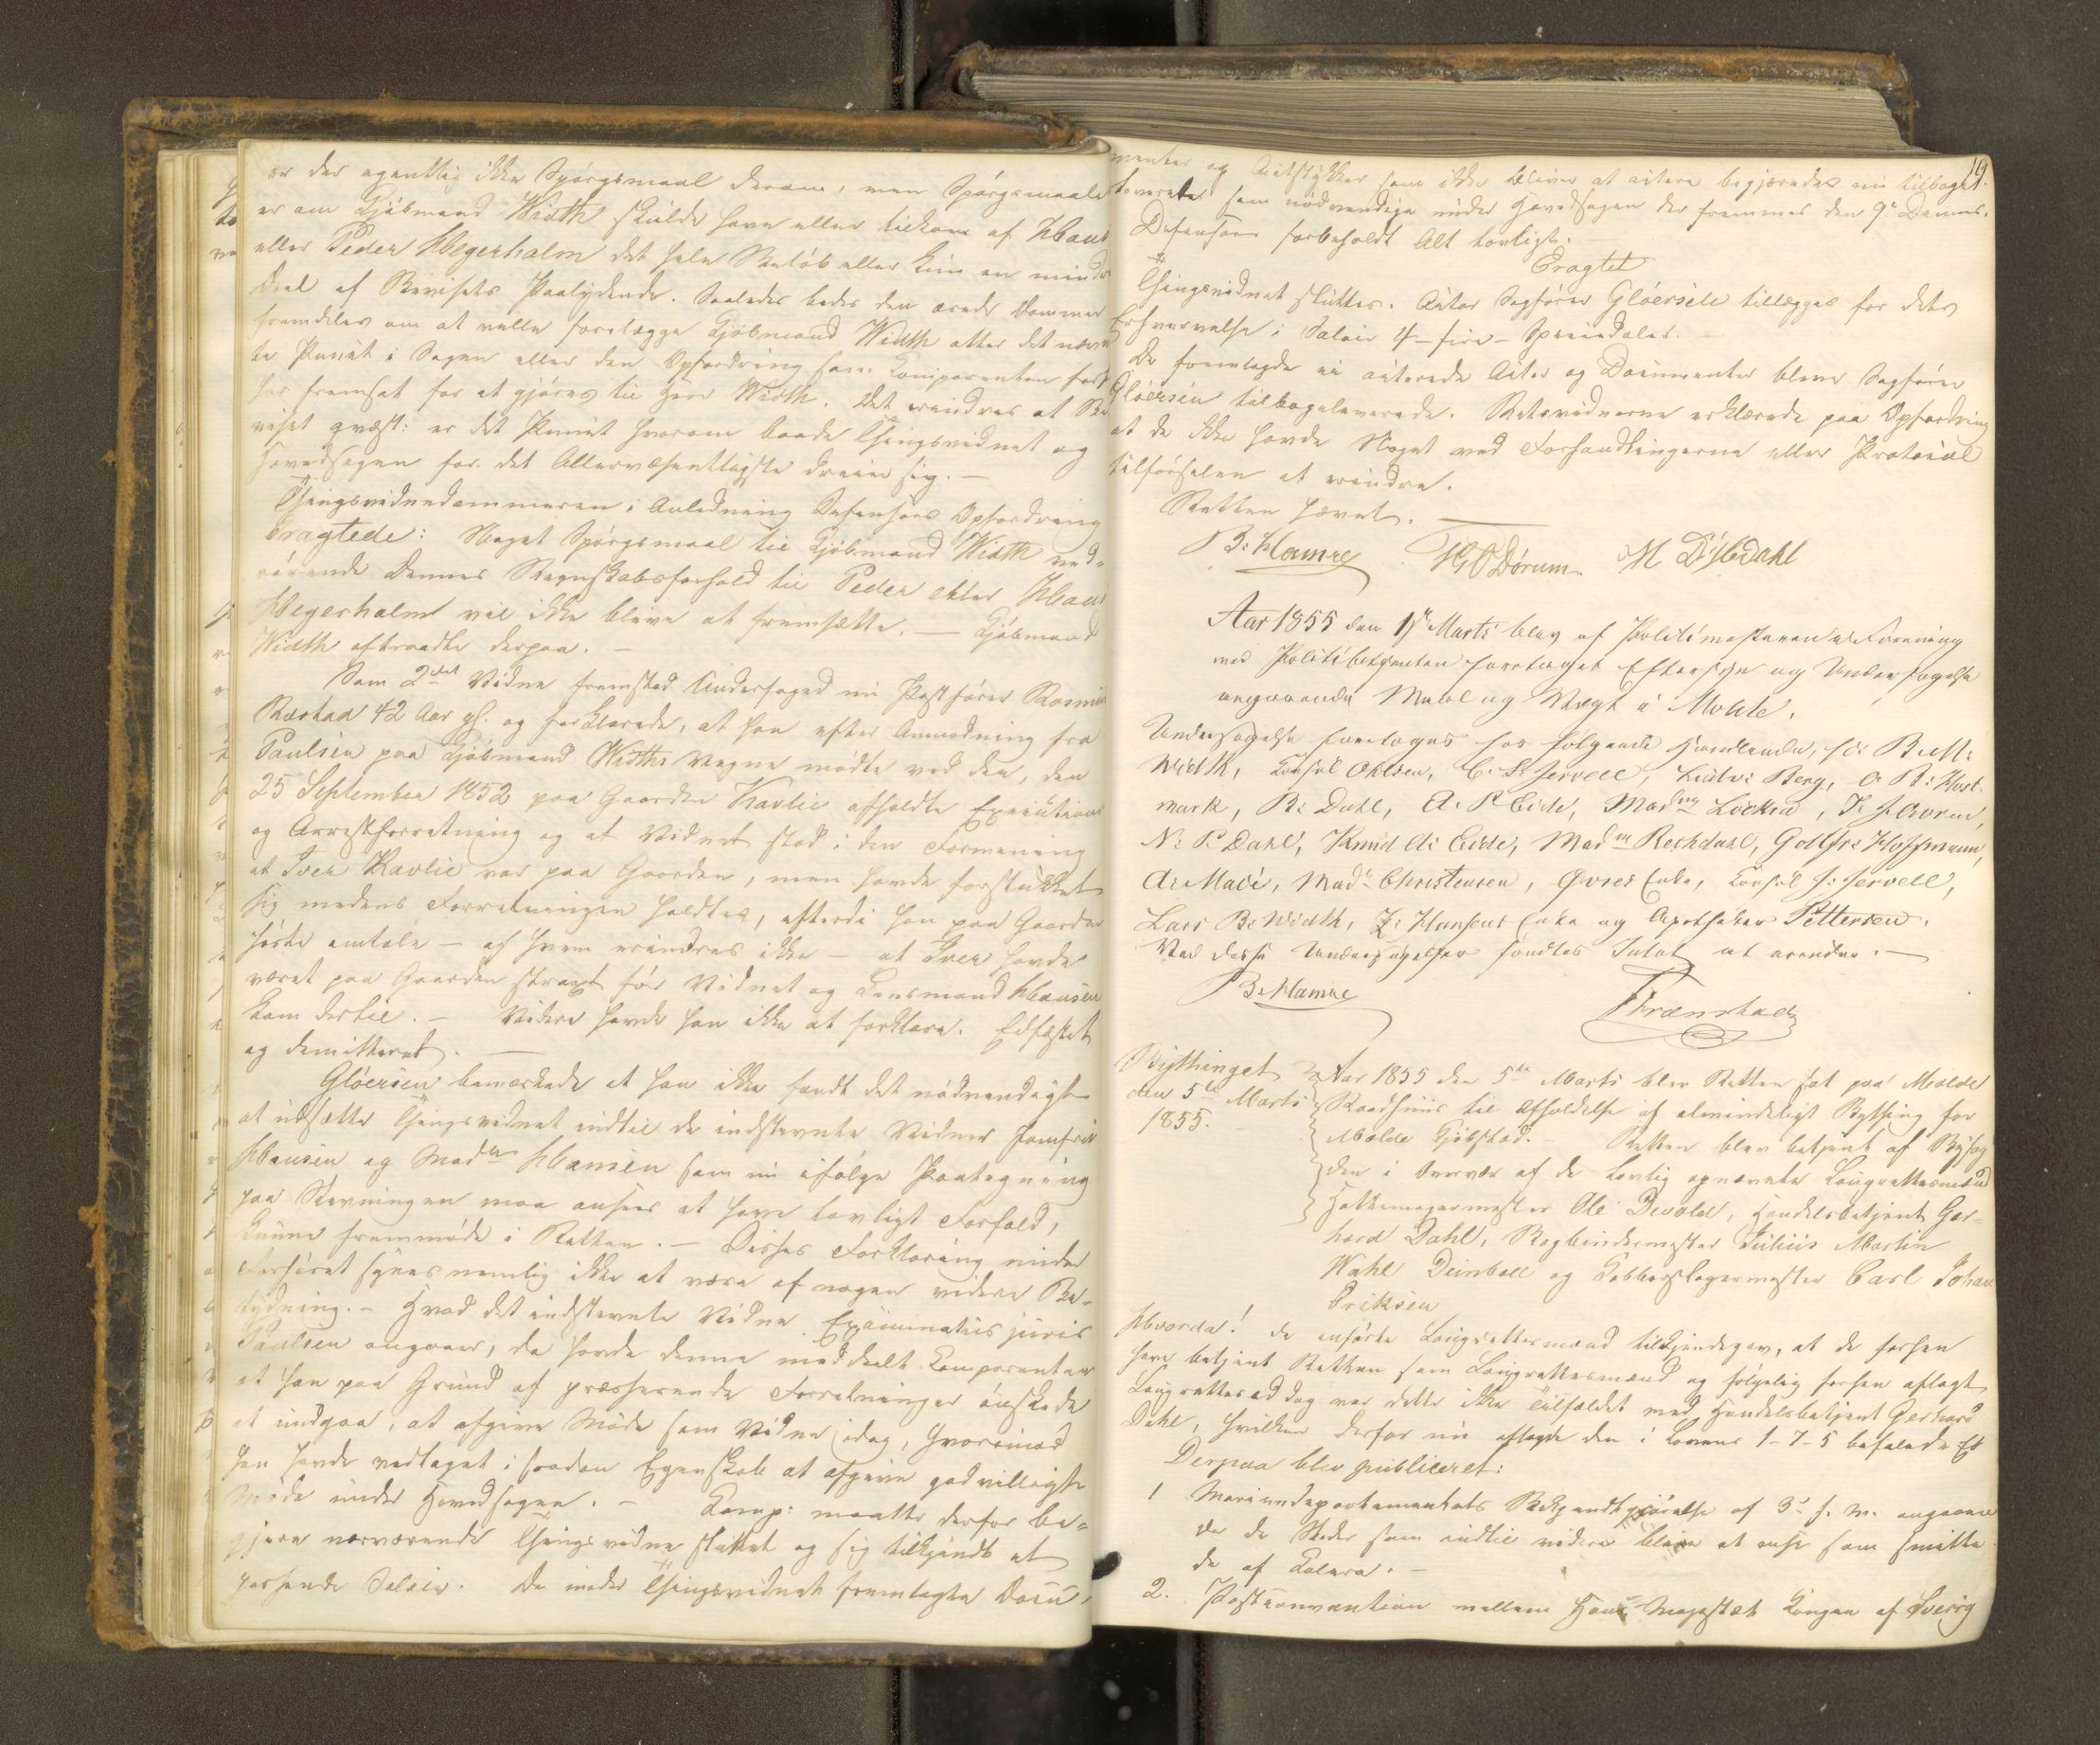 er der egentlig ikke Spörgsmaal derom, men Spörgsmaalet
er om Kjöbmand Width skulde have eller tilkom af Claus
eller Peder Hegerholm det hele Beløb eller kun en mindre
Deel af Bevisets Paalydende. Saaledes bedes den ærede Dommer
fremdeles om at ville forelægge Kjöbmand Width atter det nævn
te Punct i Sagen eller den Opfordring som Comparenten først
har fremsat for at gjøres til Herr Width. Det erindres at Be
viset qvæst: er det Punct hvorom baade Thingsvidnet og
Hovedsagen for det Allervæsentligste dreier sig. —
Thingsvidnedommeren i Anledning Defensors Opfordring
Eragtede: Noget Spörgsmaal til Kjöbmand Width ved-
rörende Dennes Regnskabsforhold til Peder eller Claus
Hegerholm vil ikke blive at fremsætte. — Kjöbmand
Width aftraadte derpaa. —
Som 2det Vidne fremstod Undersaged nu Postfører Rasmus
Ræstad 42 Aar gl. og forklarede, at han efter Anmodning fra
Paulsen paa Kjöbmand Widths Vegne mødte ved den, den
25 September 1852 paa Gaarden Kavlie afholdte Executions
og Arrestforretning og at Vidnet stod i den Formening
at Iver Kavlie var paa Gaarden, men havde forstukket
sig medens Forretningen holdtes, efterdi han paa Gaarden
hörte omtale — af hvem erindres ikke — at Iver havde
været paa Gaarden strax før Vidnet og Lensmand Clausen
kom dertil. — Videre havde han ikke at forklare. Edfæstet
og demitteret. —
Gløersen bemærkede at han ikke fandt det nødvendigt
at udsætte Thingsvidnet indtil de indstevnte Vidner Jomfru
Clausen og Madm Hansen som nu ifølge Paategning
paa Stevningen maa ansees at have lovligt Forfald,
kunne fremmøde i Retten. — Disses Forklaring under
Forhöret synes nemlig ikke at være af nogen videre Be-
tydning. — Hvad det indstevnte Vidne Examinatus juris
Paulsen angaaer, da havde denne meddeelt Comparenten
at han paa Grund af presserende Forretninger önskede
at undgaa, at afgive Møde som Vidne idag, hvorimod
han havde vedtaget i saadan Egenskab at afgive godvilligt
Møde under Hovedsagen. — Comp: maatte derfor be-
gjere nærværende Thingsvidne sluttet og sig tilkjendt et
passende Salair. De under Thingsvidnet fremlagte Docu-
19.
menter og Actstykker som ikke bliver at actere begjæredes nu tilbage-
leverede som nødvendige under Hovedsagen der fremmes den 9de Dennes.
Defensor forbeholdt Alt lovligt. —
Eragtet
Thingsvidnet sluttes. Actor Sagfører Gløersen tillægges for dets
Erhvervelse i Salair 4 - fire - Speciedaler. —
De fremlagde ei acterede Acter og Documenter bleve Sagfører
Gløersen tilbageleverede. Retsvidnerne erklærede paa Opfordring
at de ikke havde Noget ved Forhandlingerne eller Protocol
tilförselen at erindre.
Retten hævet. —
B. Hamre H O Dörum M Dÿbdahl
Aar 1855 den 1ste Marts blev af Politimesteren i Forening
med Politibetjenten foretaget Eftersyn og Undersøgelse
angaaende Maal og Vægt i Molde.
Undersøgelse foretoges hos følgaande Handlende, hos B. M.
Width, Consul Ohlsen, C. S. Jervell, Lieutn: Berg, O. B. Hust-
mark, R. Dahl, A. P. Eide, Madme Löcken, J.
N. P. Dahl, Knud A. Eide, Madme Rechdahl, Gottfr: Hoffmann,
A. Macé, Made Christensen, Øvres Enke, Consul J. Jervell,
Lars B. Width, Z. Hansens Enke og Apotheker Pettersen.
Ved disse Undersøgelser fandtes Intet at erindre. —
B. Hamre Frænstad
Bythinget
den 5te Marts
1855.
Aar 1855 den 5te Marts blev Retten sat paa Molde
Raadhuus til Afholdelse af almindeligt Bything for
Molde Kjöbstad. — Retten blev betjent af Byfog
den i Overvær af de lovlig opnævnte Laugrettesmænd
Hattemagermester Ole Devold, Handelsbetjent Ger-
hard Dahl, Bogbindermester Julius Martin
Wahl Deinboll og Kobberslagermester Carl Johan
Eriksen
Hvorda! de anførte Laugrettesmænd tilkjendegav, at de forhen
have betjent Retten som Laugrettesmænd og følgelig forhen aflagt
Laugrettesed dog var dette ikke Tilfældet med Handelsbetjent Gerhard
Dahl, hvilken derfor nu aflagde den i Lovens 1-7-5 befalede Ed
Derpaa blev publiceret:
1 Marinedepartementets Bekjendtgjörelse af 3d f. M. angaaen
de de Steder som indtil videre blive at anse som smitte
de af Colera. —
2. Postconvention mellem Hans Majestæt Kongen af Sverig